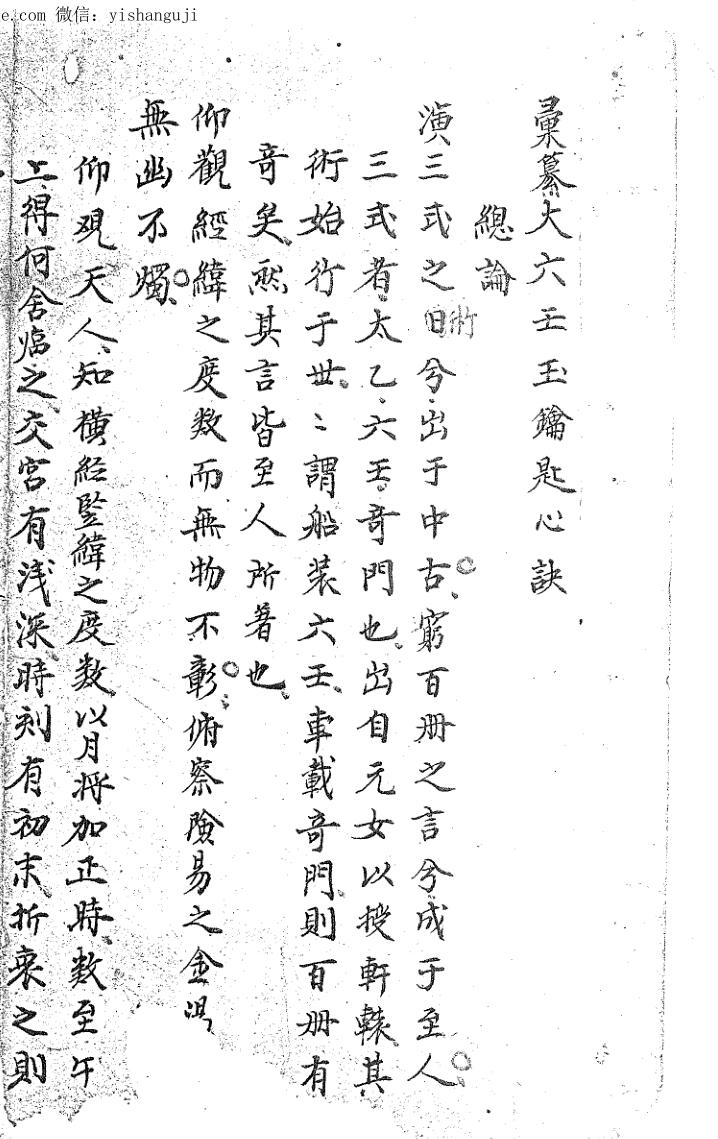 e.com 微信：yishanguji
彙纂大六壬玉鑰匙心訣
總論
演三式之旧術兮出于中古窮百册之言兮成于至人
三式者太乙六壬奇門也出自元女以授軒轅其
術始行于世〻謂船装六壬車載奇門則百册有
奇矣然其言皆至人所著也
仰觀經緯之度数而無物不彰俯察險易之
無幽不燭
仰观天人知橫経竪緯之度数以月将加正時数至午
上得何舍临之交宮有浅深時刻有初末折衷之則